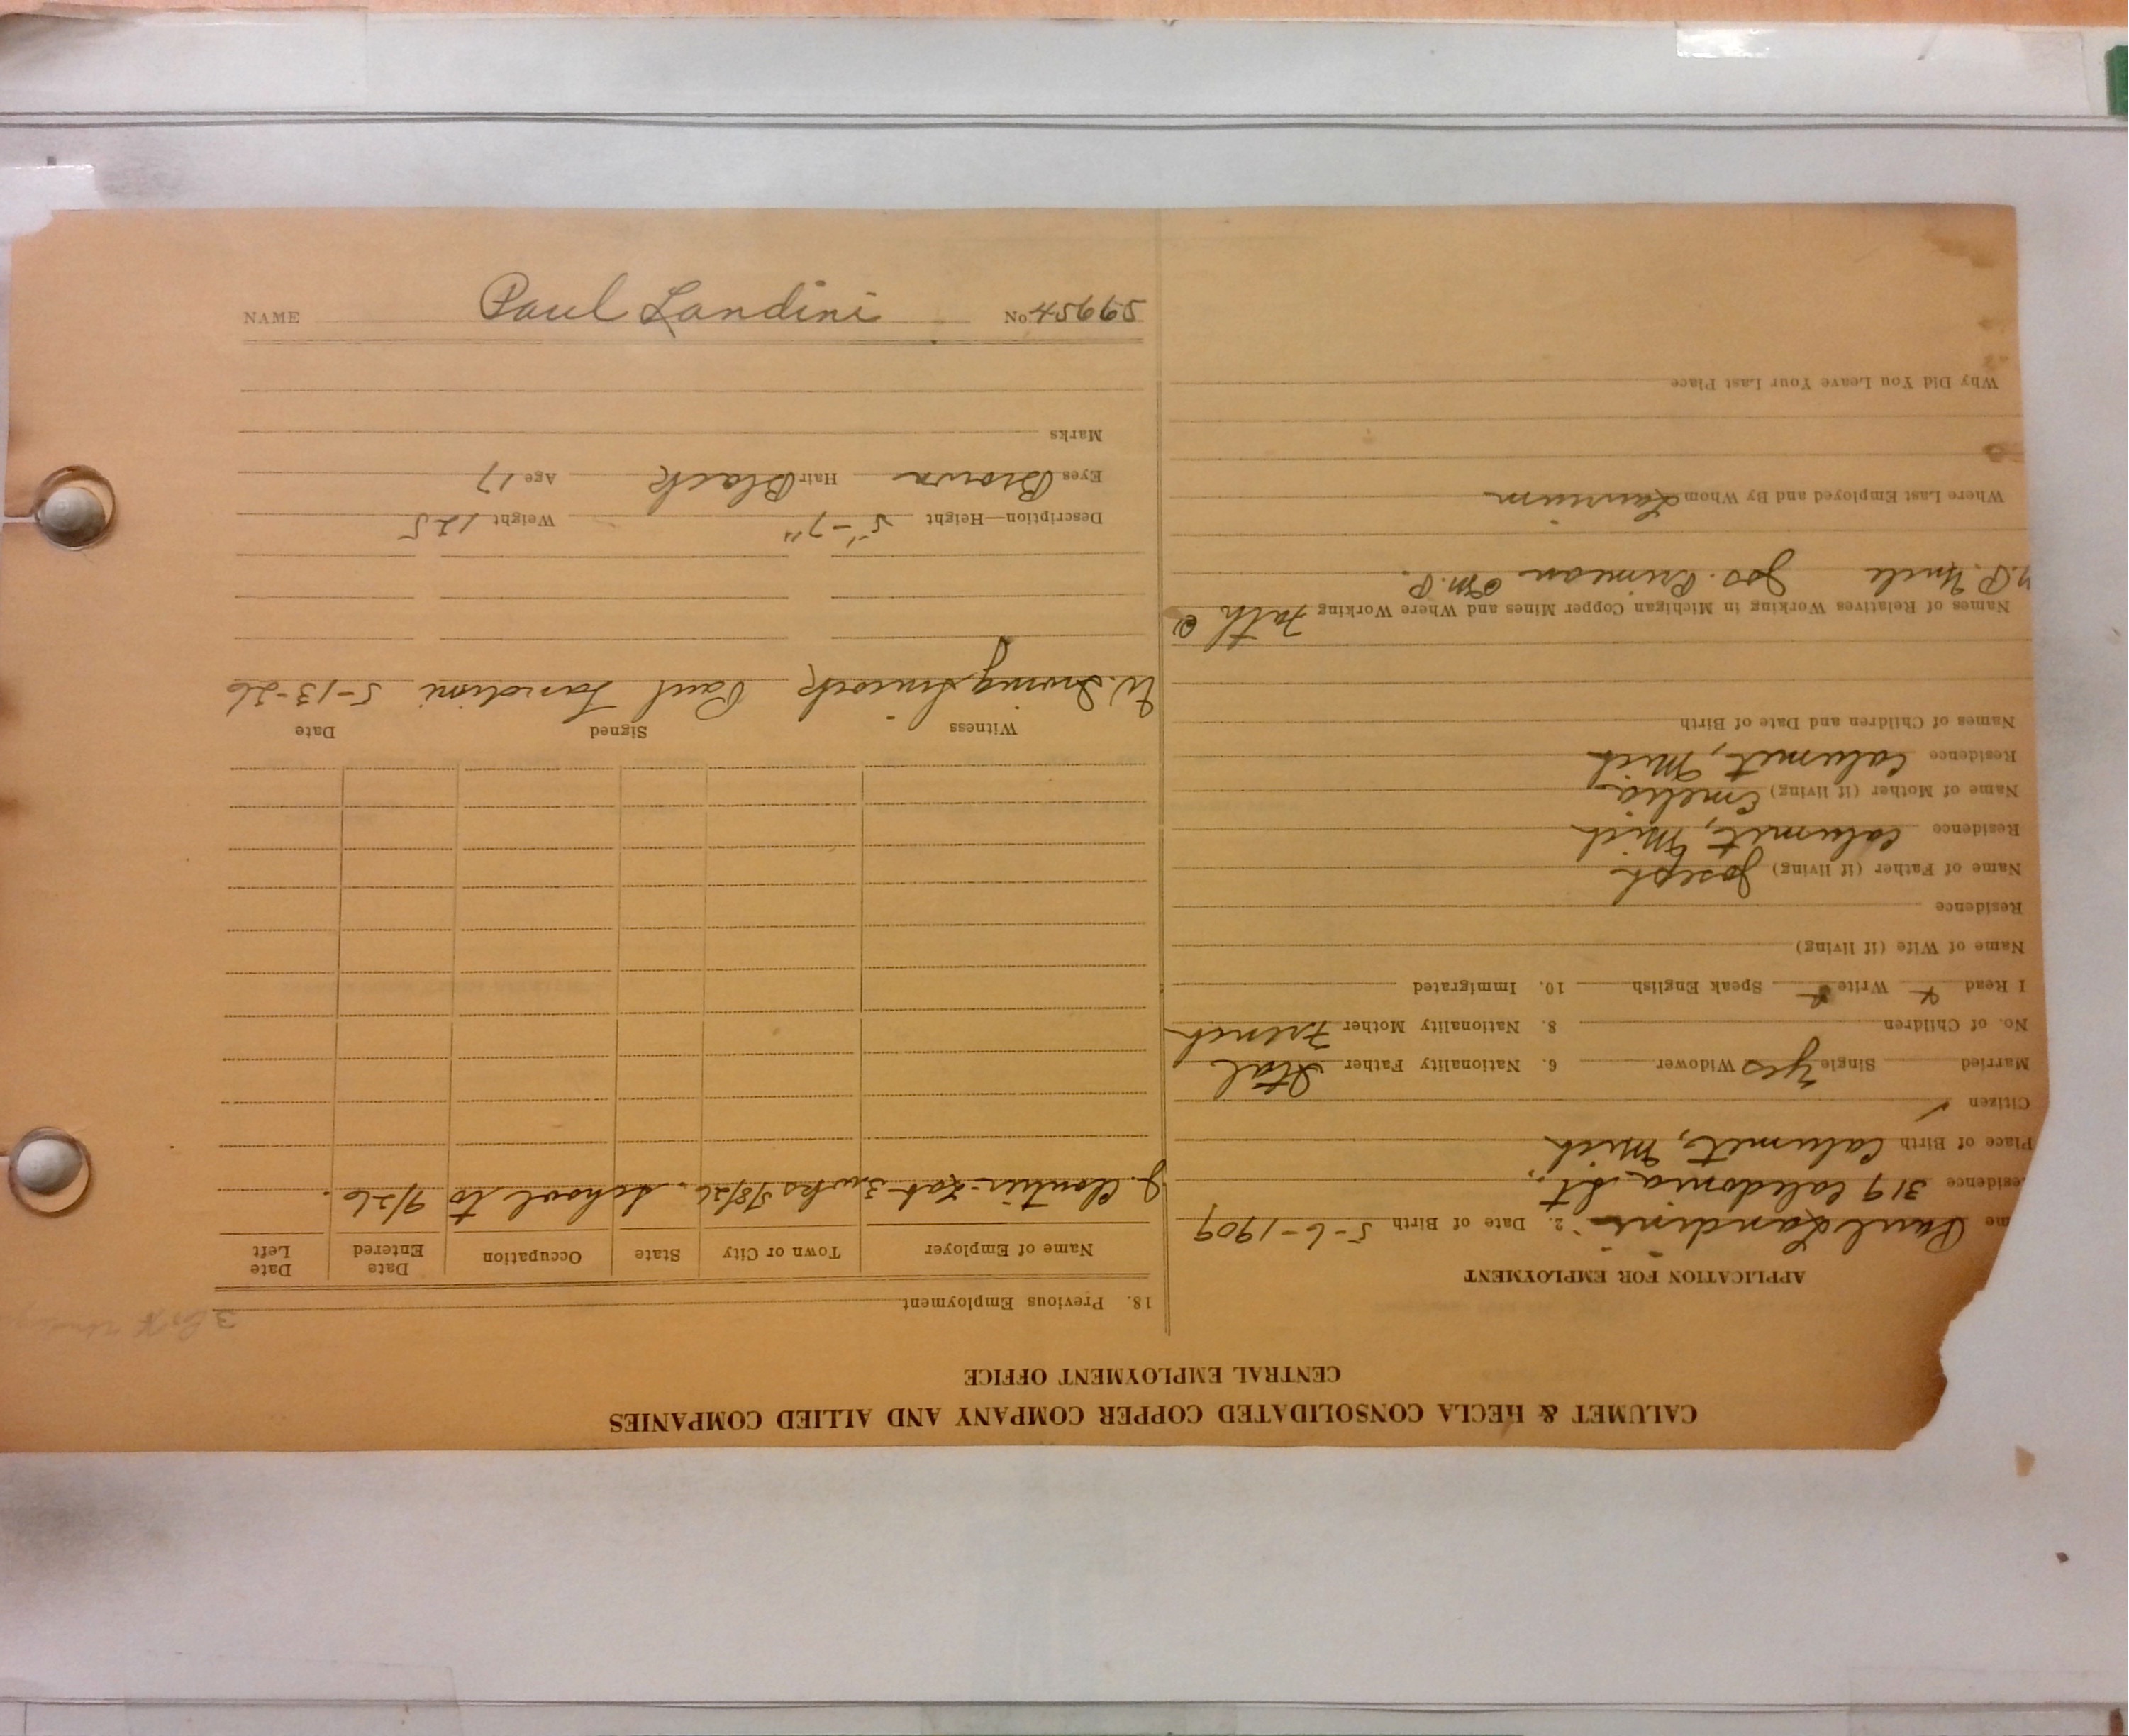 CALUMET & HECLA CONSOLIDATED COPPER COMPANY AND ALLIED COMPANIES
CENTRAL EMPLOYMENT OFFICE
APPLICATION FOR EMPLOYMENT
me Paul Landini 2. Date of Birth 5-6-1909
esidence 319 Caledonia St.,
Place of Birth Calumet, Mich
Citizen ✓
Married Single Yes Widower 6. Nationality Father Ital
No. of Children 8. Nationality Mother French
I Read Write Speak English 10. Immigrated
Name of Wife (if living)
Residence
Name of Father (if living) Joseph
Residence Calumet, Mich
Name of Mother (if living) Emelia
Residence Calumet, Mich
Names of Children and Date of Birth
Names of Relatives Working in Michigan Copper Mines and Where Working Fath @
Uncle Jos. M.P.
Where Last Employed and By Whom Laurium
Why Did You Leave Your Last Place
18. Previous Employment
Name of Employer Town or City State Occupation Date Entered Date Left
J. Cloutier 3 wks 5/8/26. School to 4/26.
Witness Signed Date
W. Irving Paul Landini 5-13-26
Description—Height 5'-7" Weight 125
Eyes Brown Hair Black Age 17
Marks
NAME Paul Landini No. 45665